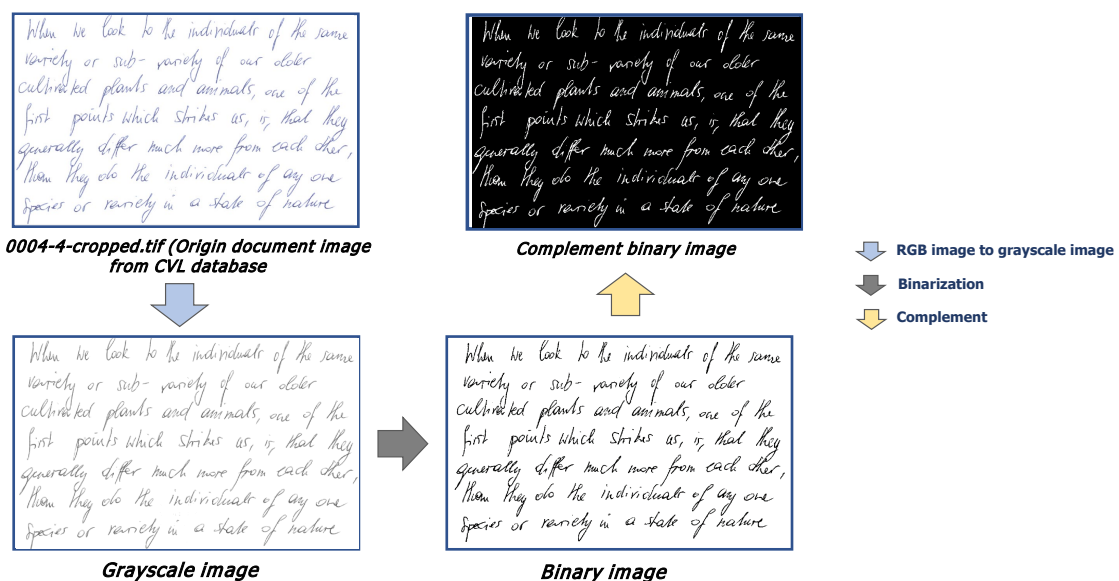 When we look to the individuals of the same
variety or sub- variety of our older
cultivated plants and animals, one of the
first points which strikes us, is, that they
generally differ much more from each other,
than they do the individuals of any one
Species or variety in a state of nature
0004-4-cropped.tif (Origin document image
from CVL database
When we look to the individuals of the same
variety or sub- variety of our older
cultivated plants and animals, one of the
first points which strikes us, is, that they
generally differ much more from each other,
than they do the individuals of any one
Species or variety in a state of nature
Complement binary image
RGB image to grayscale image
Binarization
Complement
When we look to the individuals of the same
variety or sub- variety of our older
cultivated plants and animals, one of the
first points which strikes us, is, that they
generally differ much more from each other,
than they do the individuals of any one
Species or variety in a state of nature
Grayscale image
When we look to the individuals of the same
variety or sub- variety of our older
cultivated plants and animals, one of the
first points which strikes us, is, that they
generally differ much more from each other,
than they do the individuals of any one
Species or variety in a state of nature
Binary image